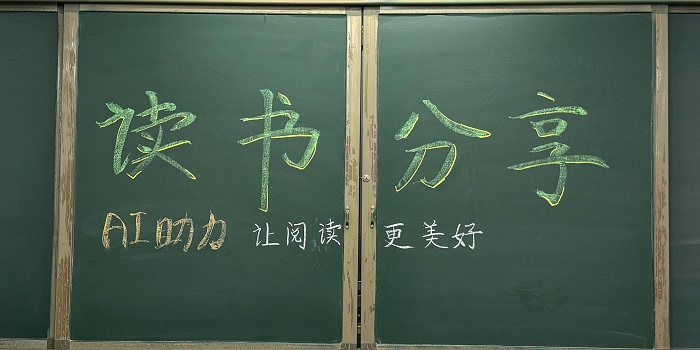 读书分享
AI助力 让阅读更美好